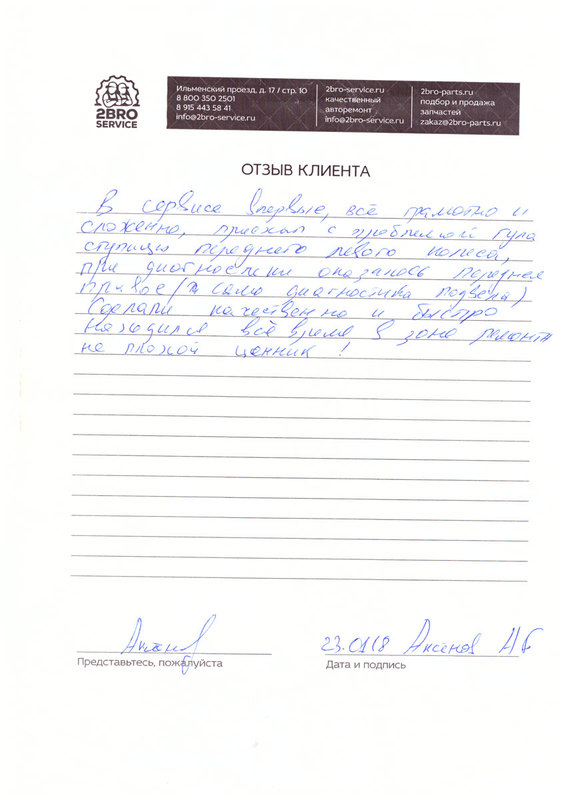 2BRO
SERVICE
Ильменский проезд, д. 17 / стр. 10
8 800 350 2501
8 915 443 58 41
info@2bro-service.ru
2bro-service.ru
качественный
авторемонт
info@2bro-service.ru
2bro-parts.ru
подбор и продажа
запчастей
zakaz@2bro-parts.ru
ОТЗЫВ КЛИЕНТА
В сервисе впервые, всё грамотно и
сложенно, приехал с проблемой гула
ступицы переднего левого колеса,
при диагностики оказалось переднее
правое ( само диагностика подвела)
Сделали качественно и быстро
Находился всё время в зоне ремонта
не плохой ценник !
Аксенов
23.01.18 Аксенов
Представьтесь, пожалуйста
Дата и подпись